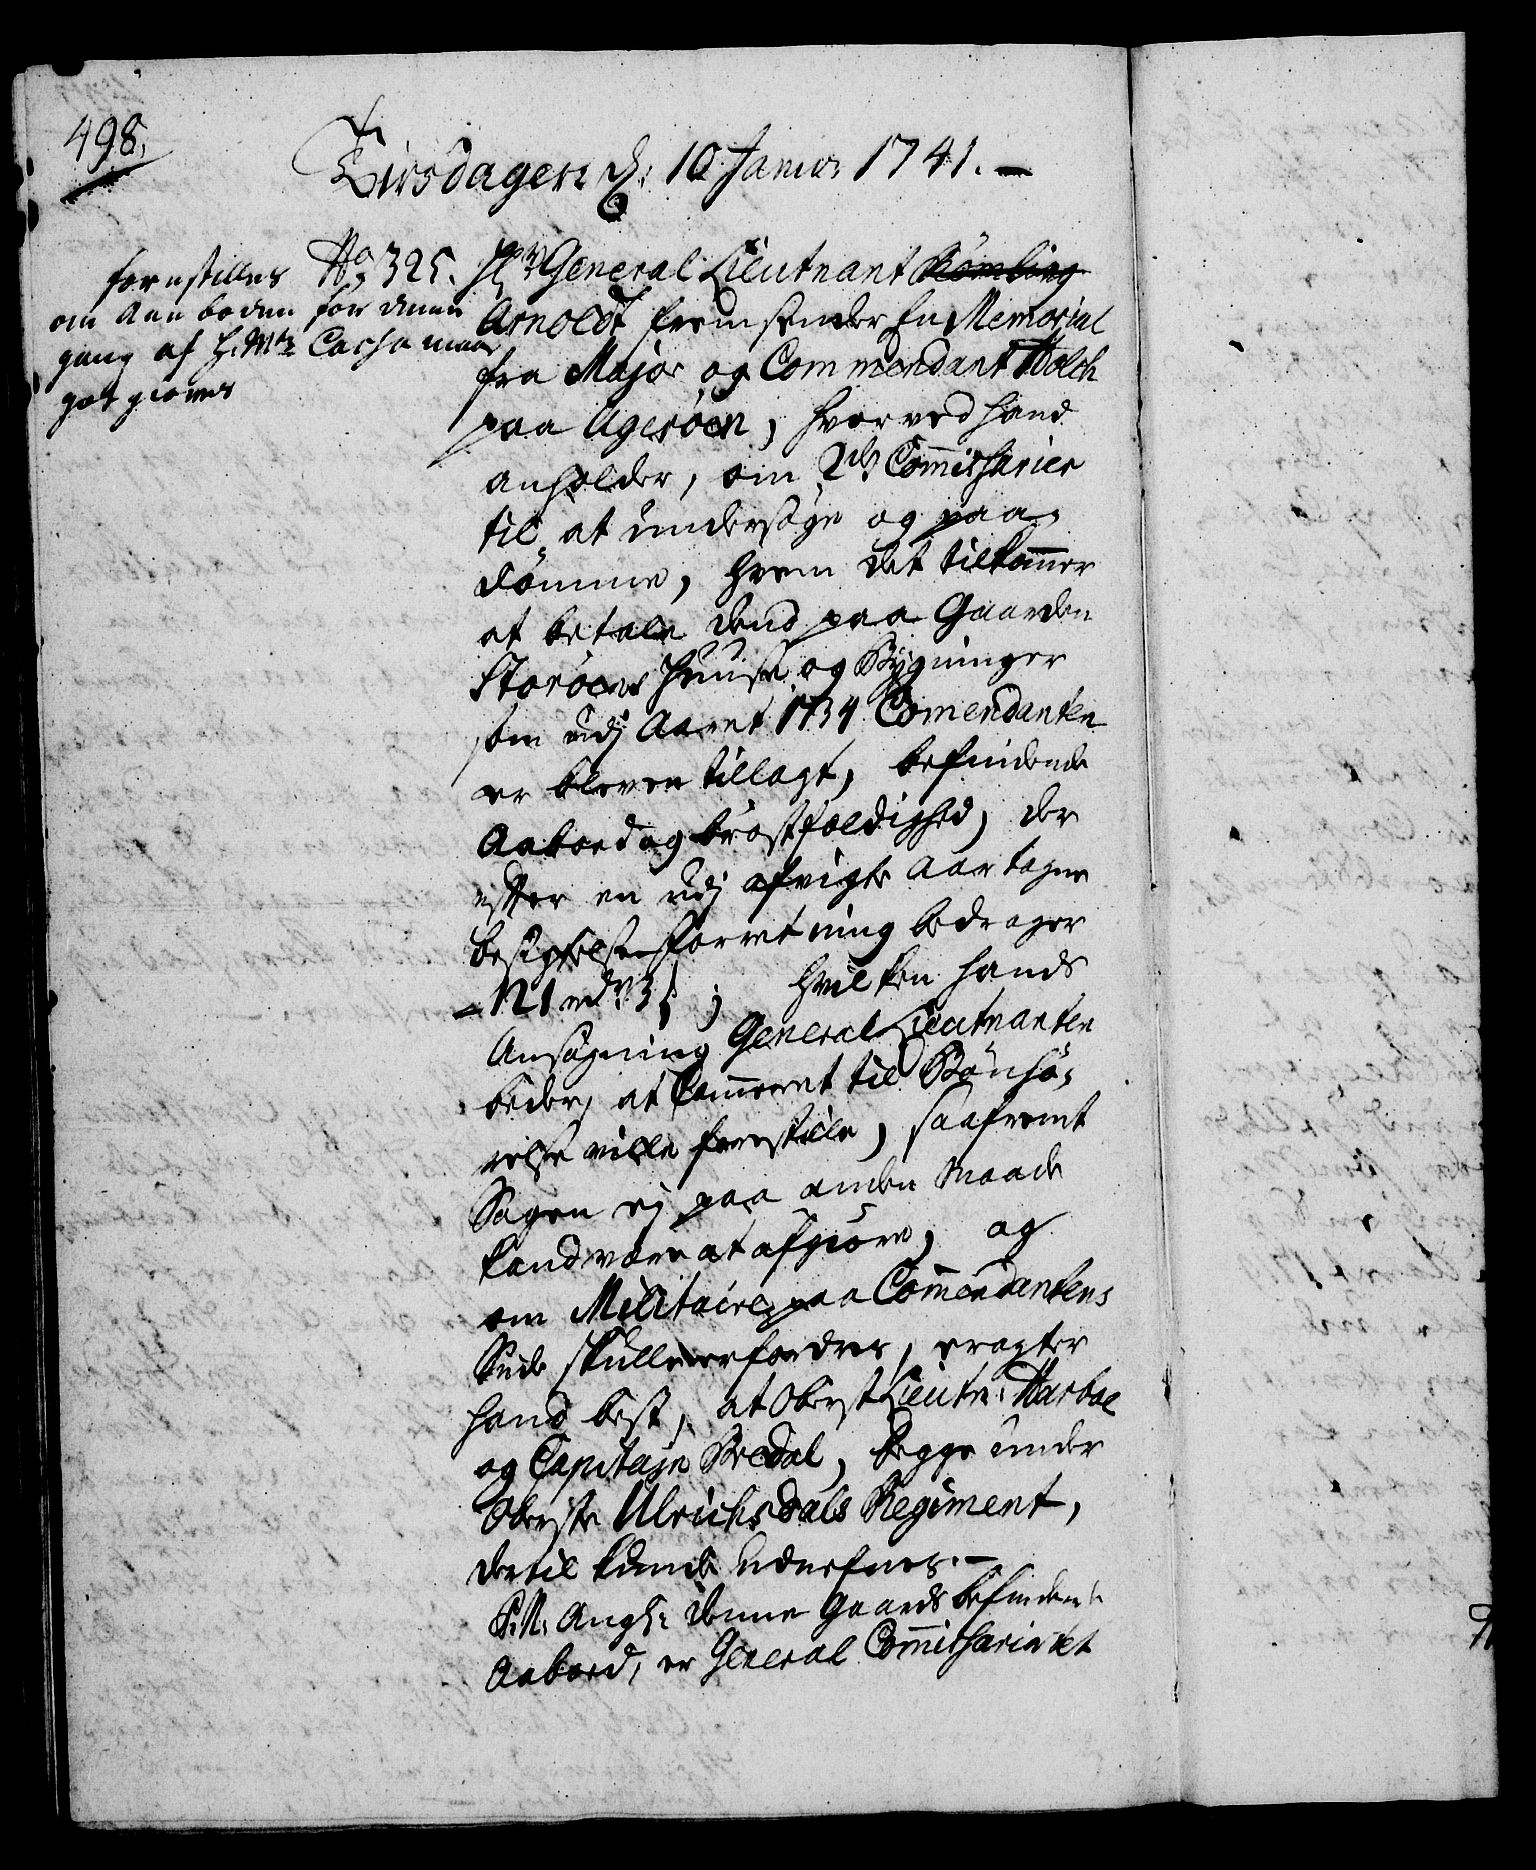 498.
Tirsdagen d: 10 Januar 1741. –
forestilles
om Aaboden for denne
gang af H. Mts Cassa maae
godtgiøres
No 325. Hr General Lieutnant Römling
Arnoldt fremsender En Memorial
fra Major og Commendant Holch
paa Ageröen, hvorved hand
anholder, om 2de Commissarier
til at undersöge og paa-
dömme, hvem det tilkommer
at betale dend paa Gaarden
Storöens Huuse og Bÿgninger
som udj Aaret 1734 Comendanten
er bleven tillagt, befindende
Aaboed og bröstfældighed, der
efter en udj afvigte Aar tagne
besigtelses forretning bedrager
121 rdr 3 ß; hvilken hands
Ansögning General Lieutnanten
beder, at Cammeret til Bönhö-
relse ville forestille, saafremt
Sagen ej paa anden Maade
kand være at afgiöre, og
om Militaire paa Commendantens
Siide skulle erfordres, eragter
hand best, at Oberst Lieutn: Harboe
og Capitain Bredal, begge under
Oberste Ulrichsdals Regiment,
dertil kunde udnefnes. –
P. M. Ang: denne Gaards befindende
Aaboed, er General Commissariatet